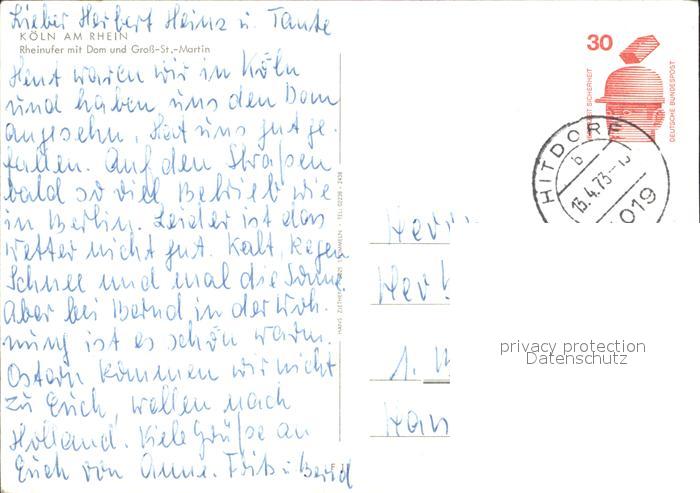 Lieber Herbert Heinz u. Tante
KÖLN AM RHEIN
Rheinufer mit Dom und Groß-St.-Martin
Heut waren wir in Köln
und haben uns den Dom
angesehn. Hat uns gut ge-
fallen. Auf den Straßen
bald so viel Betrieb wie
in Berlin. Leider ist das
Wetter nicht gut. Kalt, Regen
Schnee und mal die Sonne.
Aber bei Bernd in der Woh-
nung ist es schön warm.
Ostern kommen wir nicht
zu Euch, wollen nach
Holland. Viele Grüße an
Euch von Anne. Fritz u. Bernd
TEL. 02238 - 2438
30
SICHERHEIT
DEUTSCHE BUNDESPOST
HITDORF
b
13.4.73
019
Herr
Her
1.
Han
privacy protection
Datenschutz